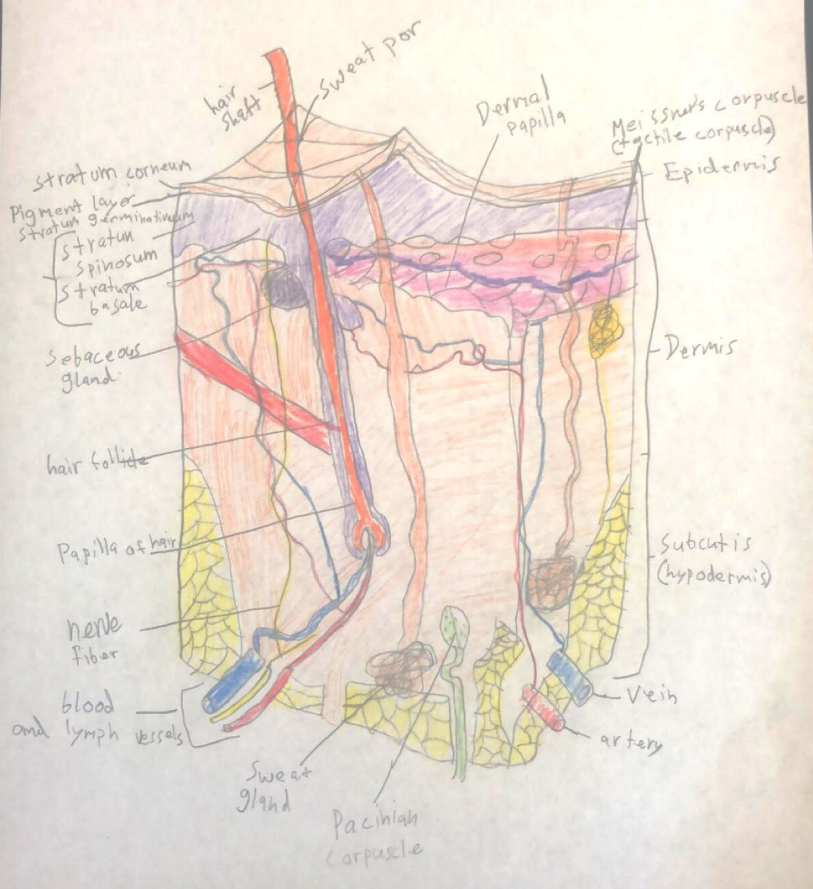 hair
shaft
sweat por
Dermal
papilla
Meissner's corpuscle
(tactile corpuscle)
Epidermis
stratum corneum
Pigment layer
stratum germinativum
stratun
spinosum
stratum
basale
Sebaceous
gland
Dermis
hair follicle
Papilla of hair
Subcutis
(hypodermis)
nerve
fiber
blood
and lymph vessels
Vein
artery
Sweat
gland
Pacinian
corpuscle